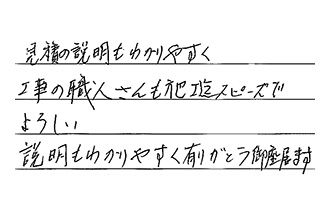 見積の説明もわかりやすく
工事の職人さんも スピーズで
よろしい
説明もわかりやすく有りがとう御座居ます